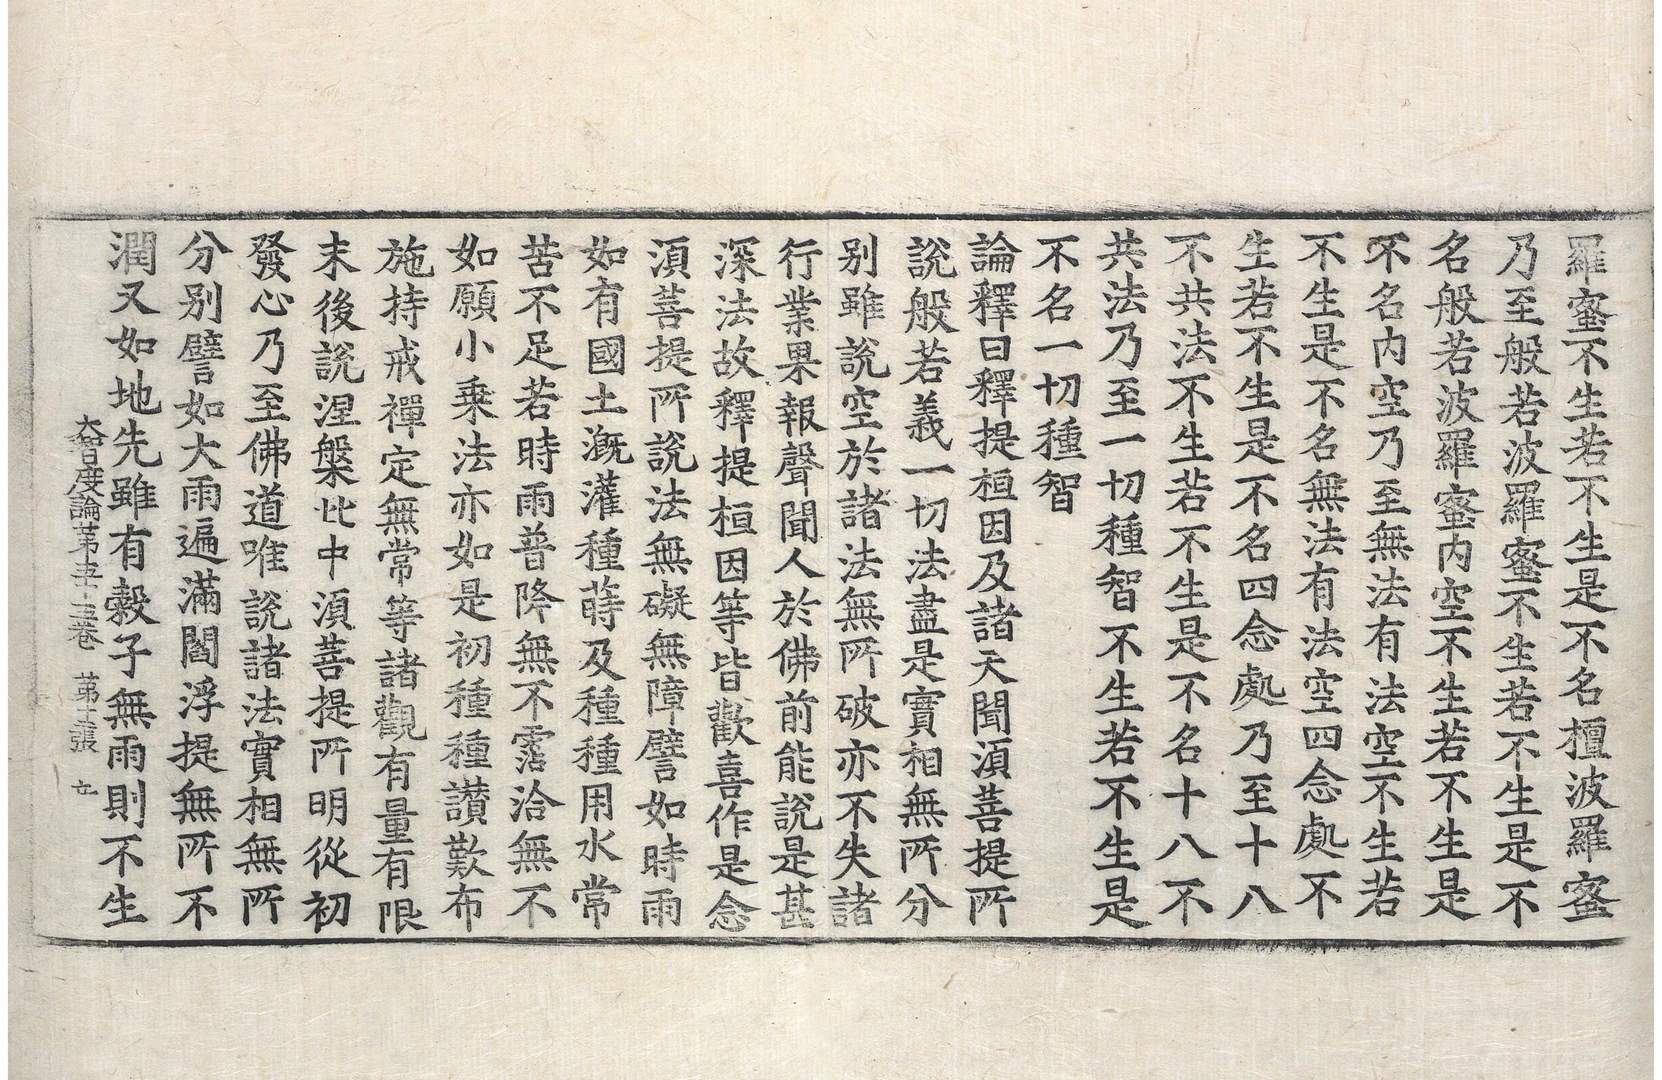 羅蜜不生若不生是不名檀波羅蜜
乃至般若波羅蜜不生若不生是不
名般若波羅蜜內空不生若不生是
不名內空乃至無法有法空不生若
不生是不名無法有法空四念處不
生若不生是不名四念處乃至十八
不共法不生若不生是不名十八不
共法乃至一切種智不生若不生是
不名一切種智
論釋曰釋提桓因及諸天聞湏菩提所
說般若義一切法盡是實相無所分
別雖說空於諸法無所破亦不失諸
行業果報聲聞人於佛前能說是甚
深法故釋提桓因等皆歡喜作是念
湏菩提所說法無礙無障譬如時雨
如有國土溉灌種蒔及種種用水常
苦不足若時雨普降無不霑洽無不
如願小乗法亦如是初種種讃歎布
施持戒禪定無常等諸觀有量有限
末後說涅槃此中湏菩提所明從初
發心乃至佛道唯說諸法實相無所
分別譬如大雨遍滿閻浮提無所不
潤又如地先雖有穀子無雨則不生
大智度論苐五十三卷 苐十張